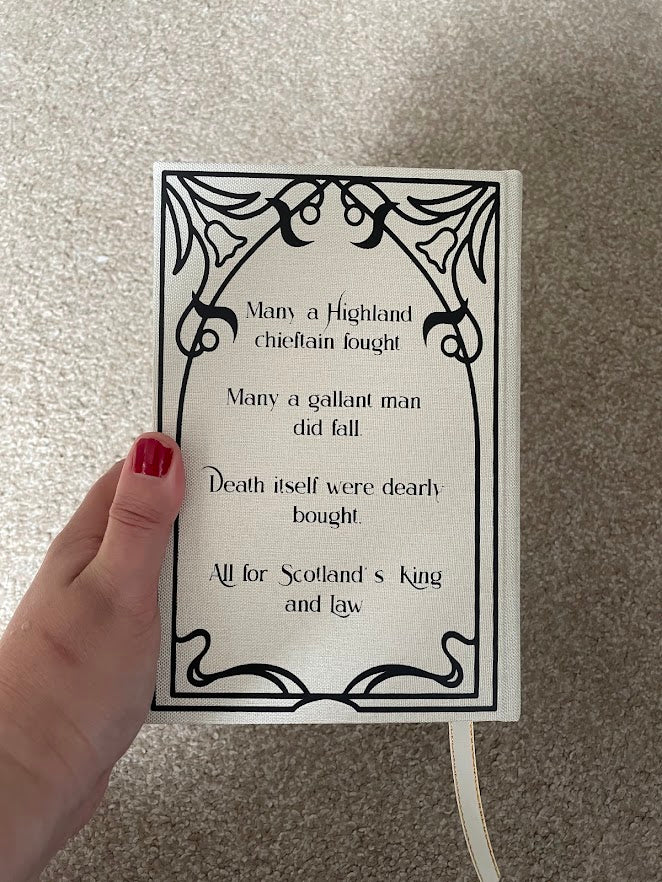 Many a Highland
chieftain fought
Many a gallant man
did fall.
Death itself were dearly
bought.
All for Scotland's King
and Law